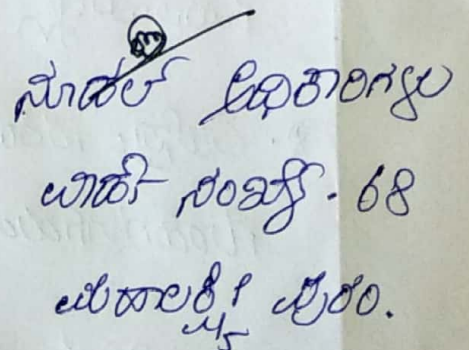 ನೂಡಲ್ ಅಧಿಕಾರಿಗಳು
ವಾರ್ಡ್ ಸಂಖ್ಯೆ - 68
ಮಹಾಲಕ್ಷ್ಮಿ ಪುರಂ.